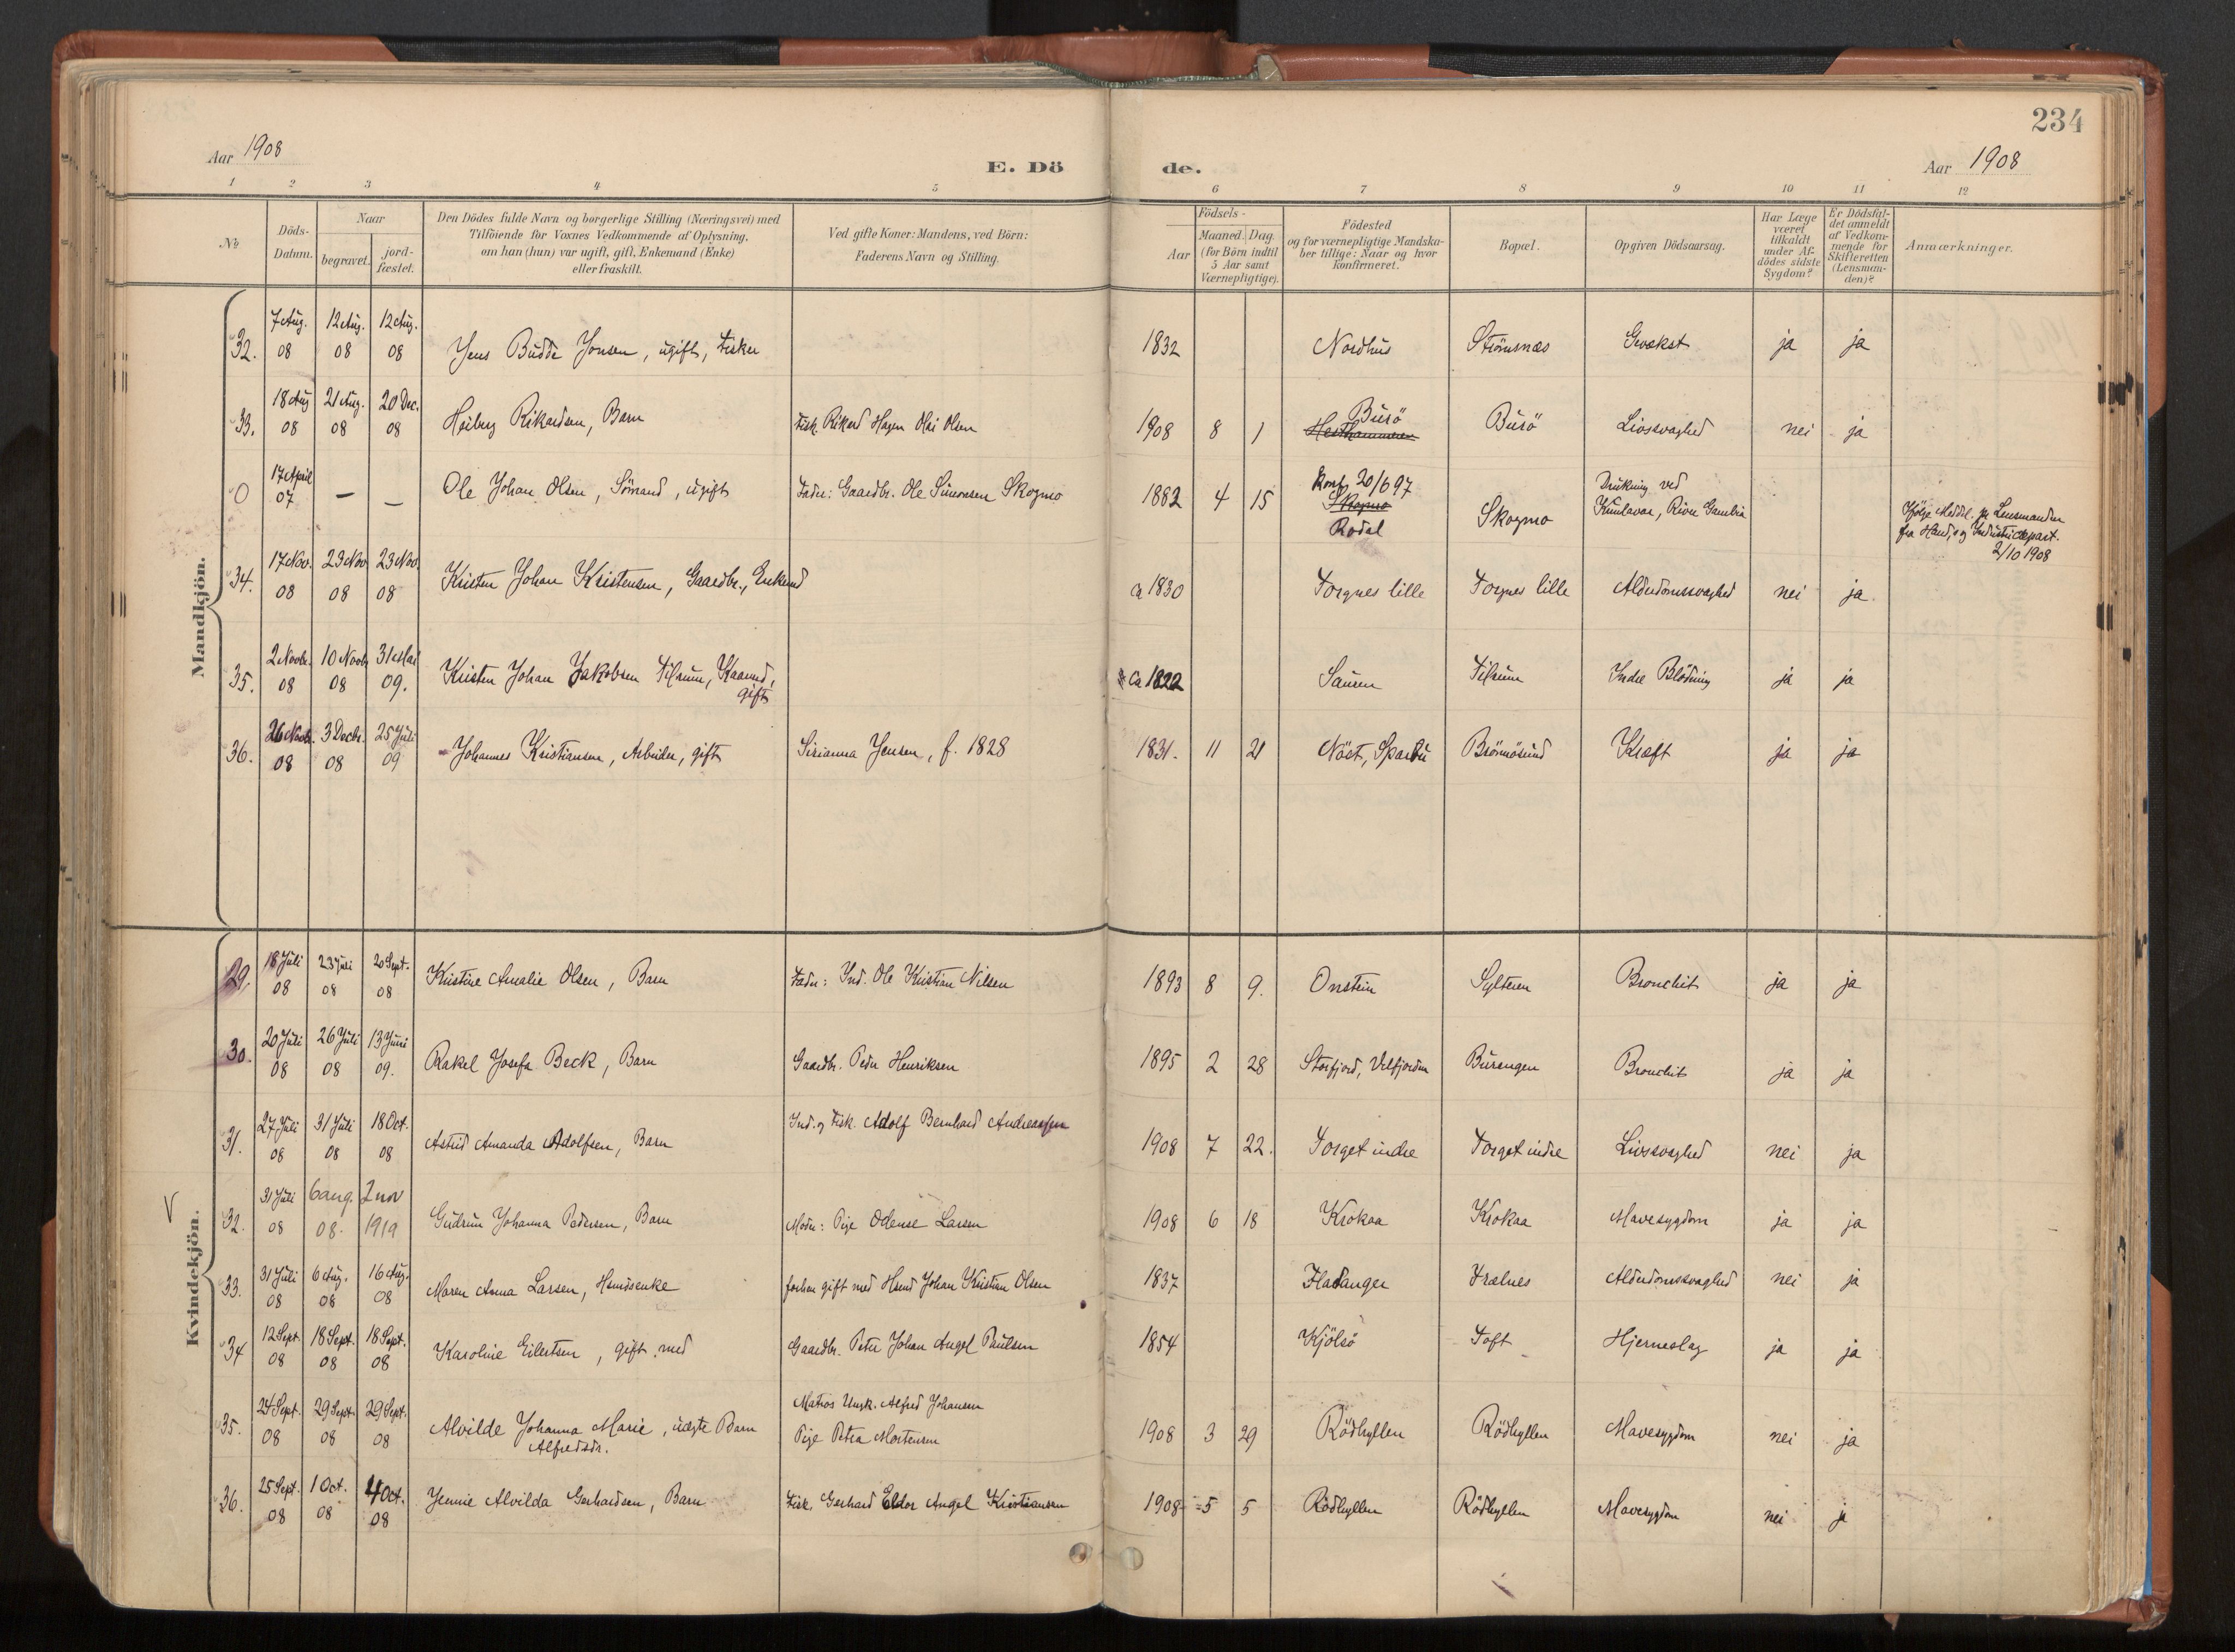 234
Aar 1908
E. Döde.
Aar 1908
1 2 3 4 5 6 7 8 9 10 11 12
No
Döds-Datum.
Naar
begravet.
jord-fæstet.
Den Dödes fulde Navn og borgerlige Stilling (Næringsvei) med
Tilföiende for Voxnes Vedkommende af Oplysning,
om han (hun) var ugift, gift, Enkemand (Enke)
eller fraskilt.
Ved gifte Koner: Mandens, ved Börn:
Faderens Navn og Stilling.
Födsels-
Aar
Maaned. Dag.
(for Börn indtil
5 Aar samt
Værnepligtige).
Födested
og for værnepligtige Mandska-
ber tillige: Naar og hvor
konfirmeret.
Bopæl.
Opgiven Dödsaarsag.
Har Læge
været
tilkaldt
under Af-
dödes sidste
Sygdom?
Er Dödsfal-
det anmeldt
af Vedkom-
mende for
Skifteretten
(Lensman-
den)?
Anmærkninger.
Mandkjön.
32. 7 Aug. 08 12 Aug. 08 12 Aug. 08 Jens Budde Jonsen, ugift, Fisker 1832 Nordhus Strömsnæs Gvækst ja ja
33. 18 Aug 08 21 Aug. 08 20 Dec. 08 Höiberg Rikardsen, Barn Fisk. Rikard Hagen Olai Olsen 1908 8 1 Burö Hesthammeren Burö Livssvaghed nei ja
0 17 April 07 — — Ole Johan Olsen, Sömand, ugift Fader: Gaardbr. Ole Simonsen Skogmo 1882 4 15 Konf. 20/6 97 Skogmo Rodal Skogmo Drukning ved
Kuulavar, River Gambia
Ifölge Meddel. fra Lensmanden
fra Hand. og Industridepart.
2/10 1908
34. 17 Nov. 08 23 Nov 08 23 Nov. 08 Kristen Johan Kristensen, Gaardbr., Enkemd ca 1830 Torgnes lille Torgnes lille Alderdomssvaghed nei ja
35. 2 Novbr. 08 10 Novb. 08 31 Mai 09. Kristen Johan Jakobsen Tilrum, Kaarmd,
gift ca 1822 Sauren Tilrum Indre Blödning ja ja
36. 26 Novb. 08 3 Decbr. 08 25 Juli 09 Johannes Kristiansen, Arbeider, gift Sirianna Jensen, f. 1828 1831. 11 21 Näst, Sparbu Brönnösund Kræft ja ja
Kvindekjön.
29. 18 Juli 08 23 Juli 08 20 Sept. 08 Kristine Amalie Olsen, Barn Fader: Ind. Ole Kristian Nilsen 1893 8 9. Onstein Sylteren Bronchit ja ja
30. 20 Juli 08 26 Juli 08 13 Juni 09. Rakel Josefa Beck, Barn Gaardbr. Peder Henriksen 1895 2 28 Storfjord, Velfjorden Burengen Bronchit ja ja
31. 27 Juli 08 31 Juli 08 18 Oct. 08 Astrid Amanda Adolfsen, Barn Ind. og Fisk. Adolf Bernhard Andreassen 1908 7 22. Torget indre Torget indre Livssvaghed nei ja
V
32. 31 Juli 08 6 aug. 08. 2 nov 1919 Gudrun Johanna Pedersen, Barn Moder: Pige Odense Larsen 1908 6 18 Krokaa Krokaa Mavesygdom ja ja
33. 31 Juli 08 6 Aug. 08 16 Aug. 08 Maren Anna Larsen, Husmdsenke forhen gift med Husmd Johan Kristian Olsen 1837 Fladanger Trælnes Alderdomssvaghed nei ja
34 12 Sept. 08 18 Sept. 08 18 Sept. 08 Karoline Eilertsen, gift med Gaardbr. Peter Johan Angel Paulsen 1854 Kjölsö Toft Hjerneslag ja ja
35. 24 Sept. 08 29 Sept. 08 29 Sept. 08 Alvilde Johanna Marie, uægte Barn
Alfredsdr. Matros Ungk. Alfred Johansen
Pige Petra Mortensen 1908 3 29 Rödhyllen Rödhyllen Mavesygdom nei ja
36. 25 Sept. 08 1 Oct. 08 4 Oct. 08 Jennie Alvilda Gerhardsen, Barn Fisk. Gerhard Eldor Angel Kristiansen 1908 5 5 Rödhyllen Rödhyllen Mavesygdom nei ja